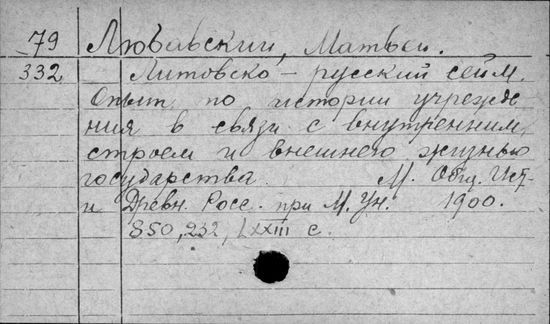 79 Любавский, Матвей.
332 Литовско-русский сейм.
Опыт по истории учрежде
ния в связи с внутренним
строем и внешнею жизнью
государства. М. Общ. Ист.
и Древн. Росс. при М. Ун. 1900.
850, 232, LXXIII с.